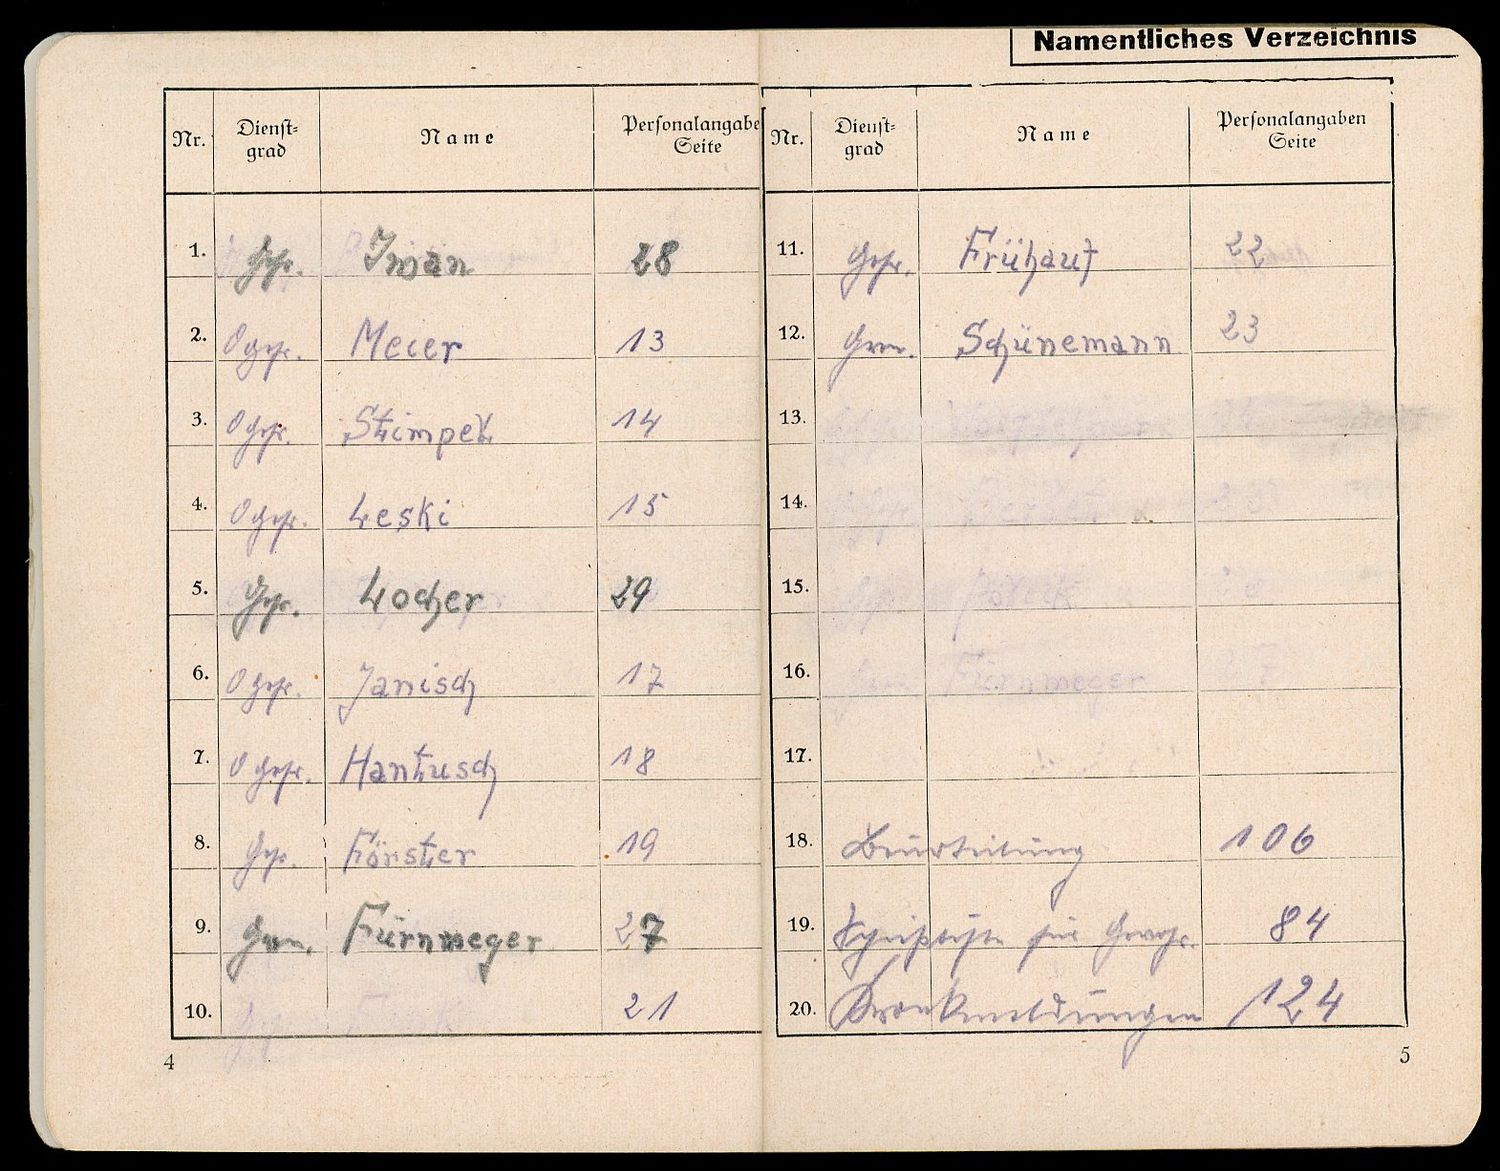 Namentliches Verzeichnis
Nr. Dienst- grad Name Personalangabe Seite
1. Gefr. Iwan 28
2. Ogefr. Meier 13
3. Ogefr. Stimpel 14
4. Ogefr. Leski 15
5. Gefr. Locher 29
6. Ogefr. Janisch 17
7. Ogefr. Hantusch 18
8. Gefr. Förster 19
9. Gren. Fürnmeger 27
10. 21
4
Nr. Dienst- grad Name Personalangaben Seite
11. Gefr. Frühauf 22
12. Gren. Schünemann 23
13.
14.
15.
16. Fürnmeger
17.
18. Beurteilung 106
19. für 84
20. Krankmeldungen 124
5